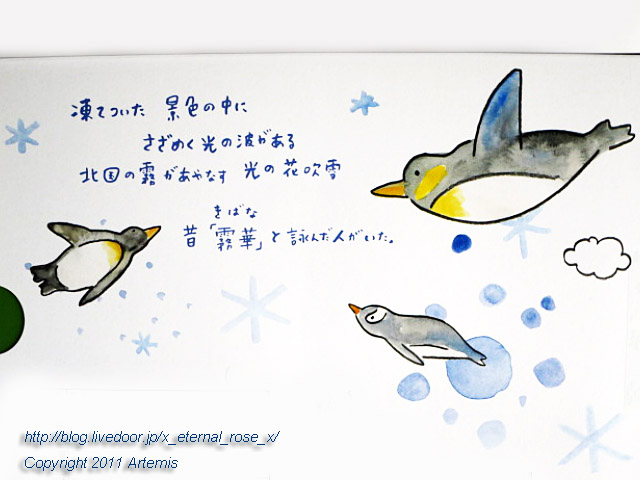 凍てついた 景色の中に
さざめく光の波がある
北国の霧があやなす 光の花吹雪
きばな
昔「霧華」と詠んだ人がいた。
http://blog.livedoor.jp/x_eternal_rose_x/
Copyright 2011 Artemis